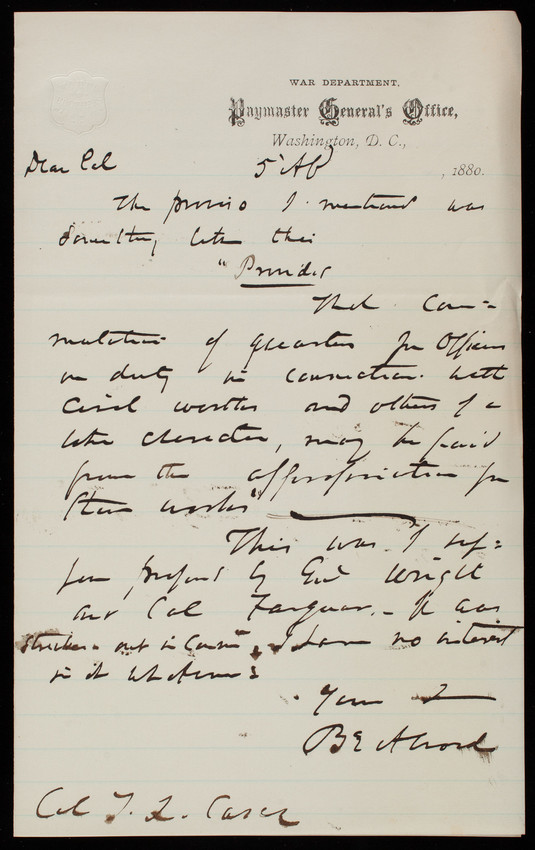 WAR DEPARTMENT,
Paymaster General's Office,
Washington, D. C.,
Dear Col 5 Ap , 1880.
The proviso I mentioned was
something like this
"Provided
That com=
mutation of quarters for Officers
on duty in connection with
Civil works and others of a
like character, may be paid
from the appropriation for
those works"
This was, I sup=
pose, prepared by Genl Wright
and Col Farquar. - It was
stricken out in Comm, I have no interest
in it whatever
Yours
B Alvord
Col T. L. Casey